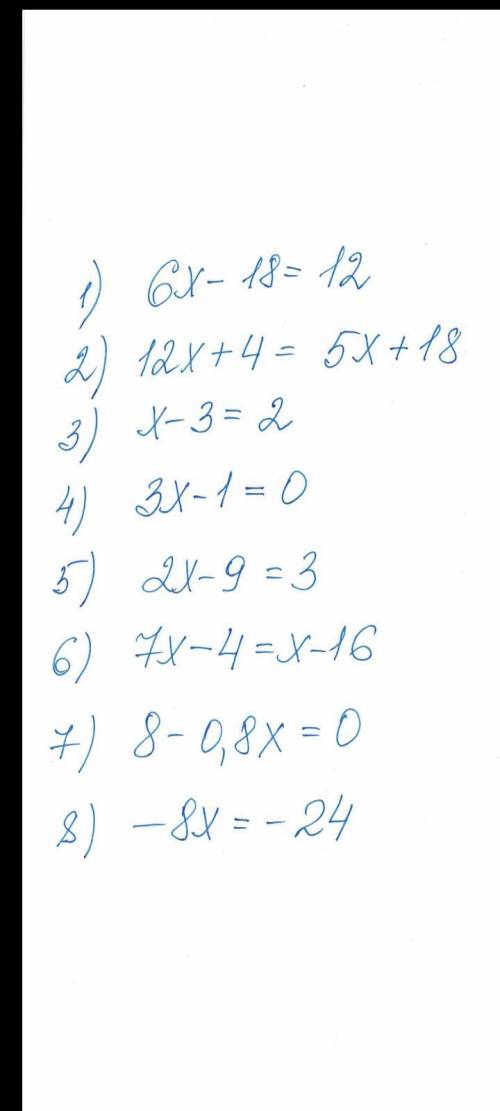 1) 6x - 18 = 12
2) 12x + 4 = 5x + 18
3) x - 3 = 2
4) 3x - 1 = 0
5) 2x - 9 = 3
6) 7x - 4 = x - 16
7) 8 - 0,8x = 0
8) -8x = -24